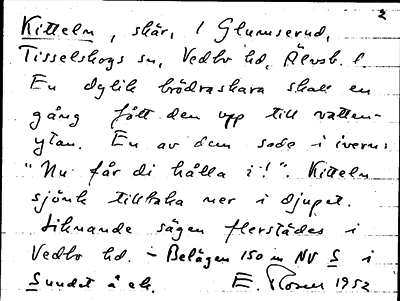 2
Kitteln, skär, i Glumserud,
Tisselskogs sn, Vedbo hd, Älvsb. l.
En dylik brödraskara skall en
gång fått den upp till vatten-
ytan. En av dem sade i ivern:
"Nu får di hålla i!". Kitteln
sjönk tillbaka ner i djupet.
Liknande sägen flerstädes i
Vedbo hd. - Belägen 150 m NV S i
Sundet å ek. E. 1952